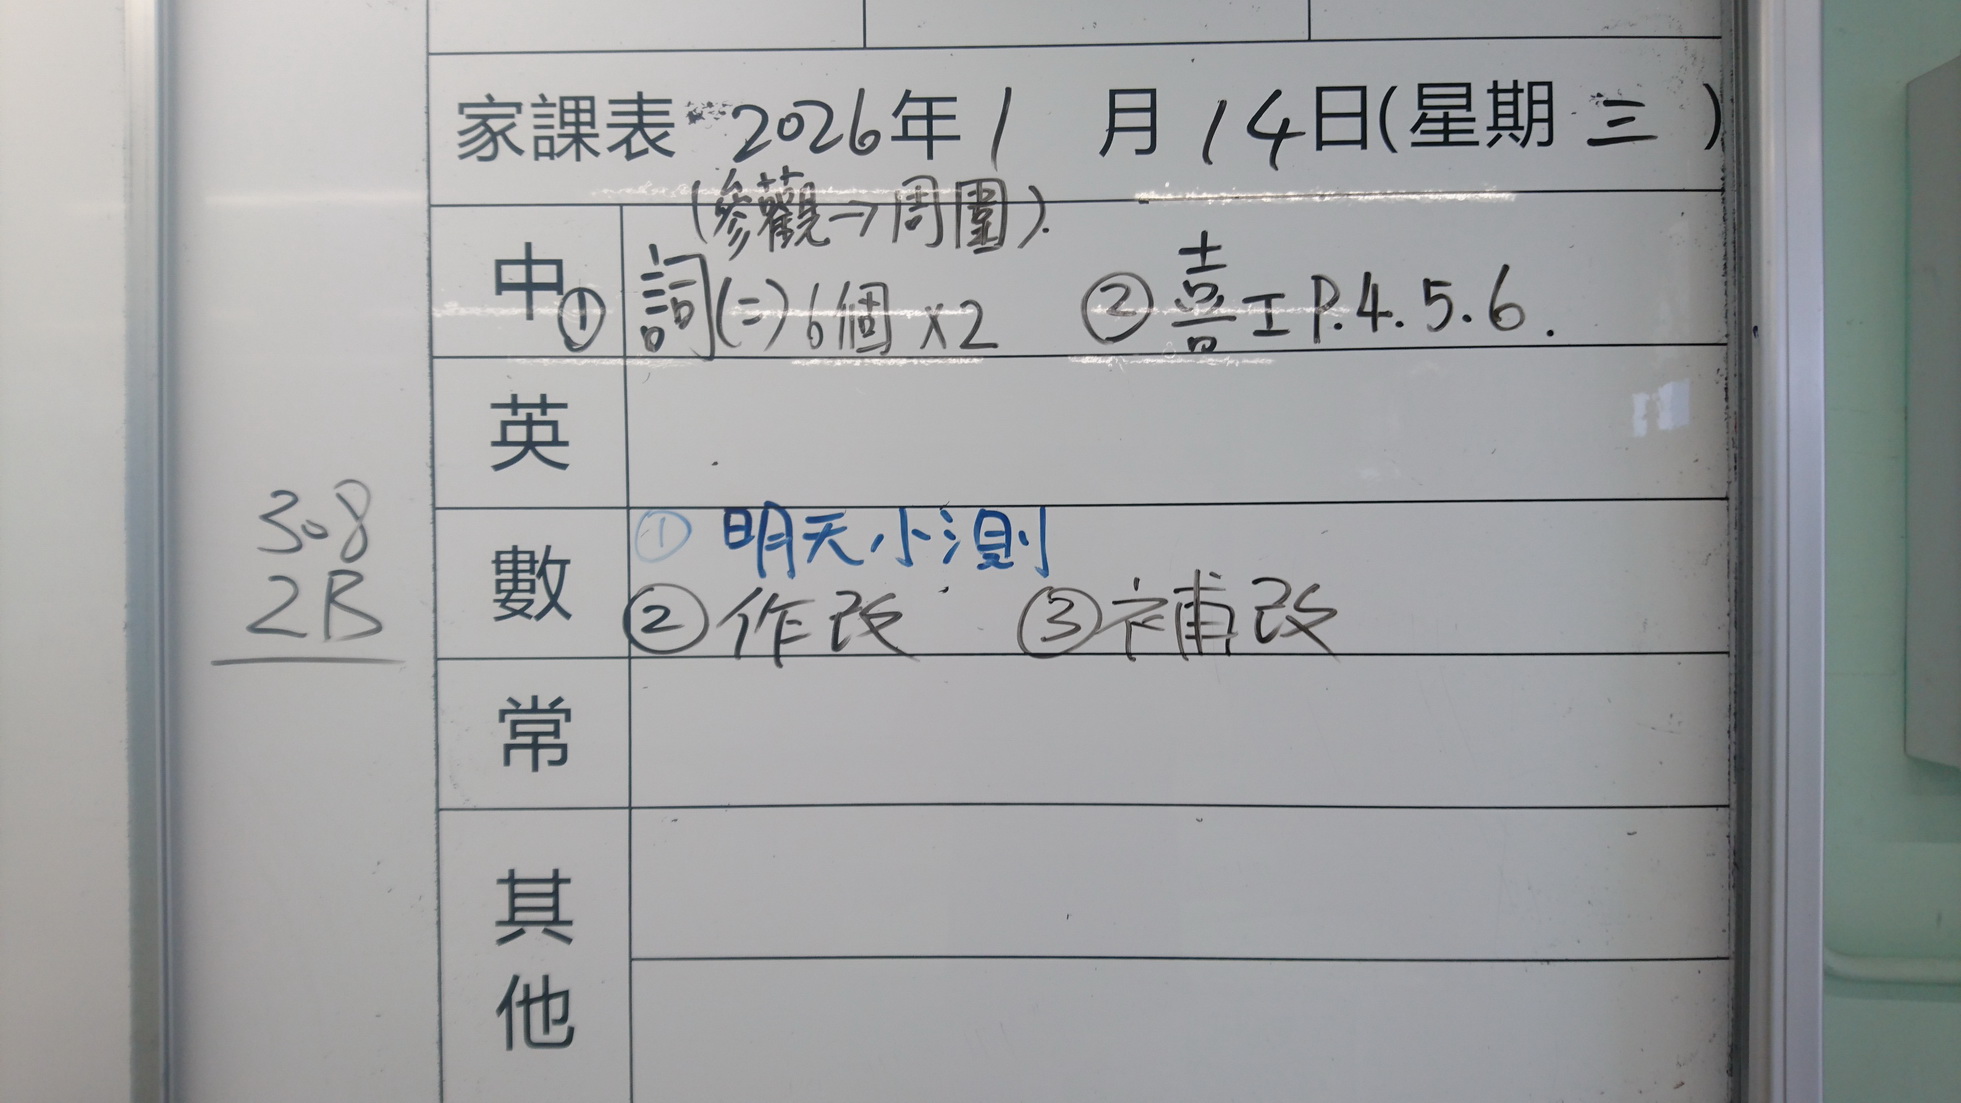 家課表 2026年 1 月 14日(星期 三 )
(參觀→周圍).
中 ① 詞(二)6個 x2 ② 喜工 P.4.5.6.
英
數 ① 明天小測
② 作改 ③ 補改
常
其他
308
2B